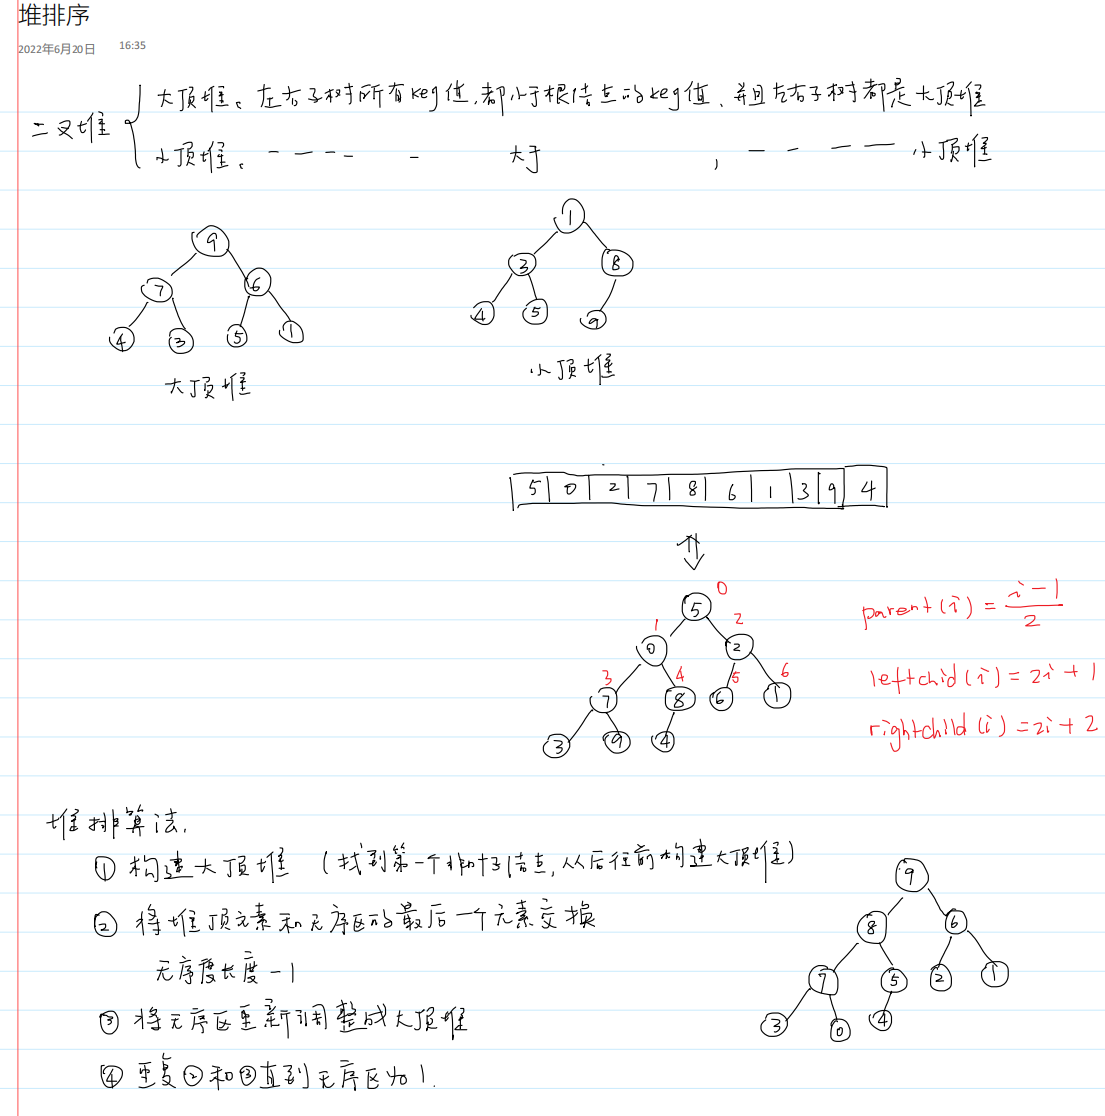 堆排序
2022年6月20日 16:35
二叉堆
大顶堆、左右子树所有key值,都小于根结点的key值、并且左右子树都是大顶堆
小顶堆、- — - - - 大于 , — - — — 小顶堆
9
7 6
4 3 5 1
大顶堆
1
3 8
4 5 9
小顶堆
5 0 2 7 8 6 1 3 9 4
0
5
1 2
0 2
3 4 5 6
7 8 6 1
3 9 4
parent(i) = i-1/2
leftchid(i) = 2i + 1
rightchild(i) = 2i + 2
堆排算法.
① 构建大顶堆 (找到第一个非叶子结点,从后往前构建大顶堆)
② 将堆顶元素和无序区的最后一个元素交换
无序度长度 -1
③ 将无序区重新调整成大顶堆
④ 重复②和③直到无序区为1.
9
8 6
7 5 2 1
3 0 4